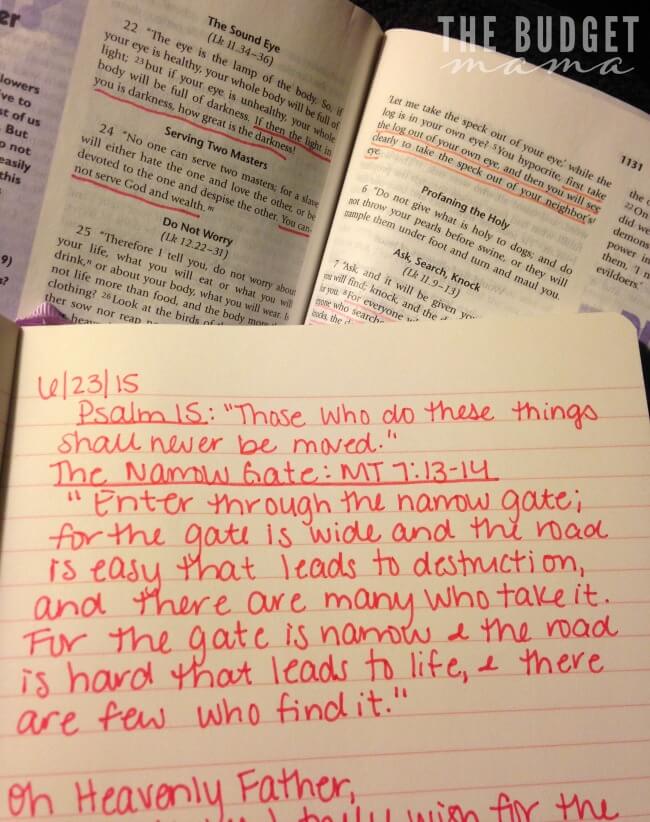 THE BUDGET
mama
er
lowers
ve to
st of us
. But
o not
easily
this
9)
s?
The Sound Eye
(Lk 11.34–36)
22 "The eye is the lamp of the body. So, if
your eye is healthy, your whole body will be full of
light; 23 but if your eye is unhealthy, your whole
body will be full of darkness. If then the light in
you is darkness, how great is the darkness!
Serving Two Masters
24 "No one can serve two masters; for a slave
will either hate the one and love the other, or be
devoted to the one and despise the other. You can-
not serve God and wealth. m
Do Not Worry
(Lk 12.22–31)
25 "Therefore I tell you, do not worry about
your life, what you will eat or what you will
drink, n or about your body, what you will wear. Is
not life more than food, and the body more
clothing? 26 Look at the birds of
ther sow nor reap no
heav
1131
'Let me take the speck out of your eye,' while the
log is in your own eye? 5 You hypocrite, first take
the log out of your own eye, and then you will see
clearly to take the speck out of your neighbor's
eye.
Profaning the Holy
6 "Do not give what is holy to dogs; and do
not throw your pearls before swine, or they will
trample them under foot and turn and maul you.
Ask, Search, Knock
(Lk 11.9–13)
7 "Ask, and it will be given you
you will find; knock, and the d
for you. 8 For everyone
one who searche
knocks, the d
the
22 On
did we
demons
power in
them, 'I n
evildoers.'
6/23/15
Psalm 15: "Those who do these things
shall never be moved."
The Narrow Gate: MT 7:13-14
" Enter through the narrow gate;
for the gate is wide and the road
is easy that leads to destruction,
and there are many who take it.
For the gate is narrow & the road
is hard that leads to life, & there
are few who find it."
Oh Heavenly Father,
wish for the